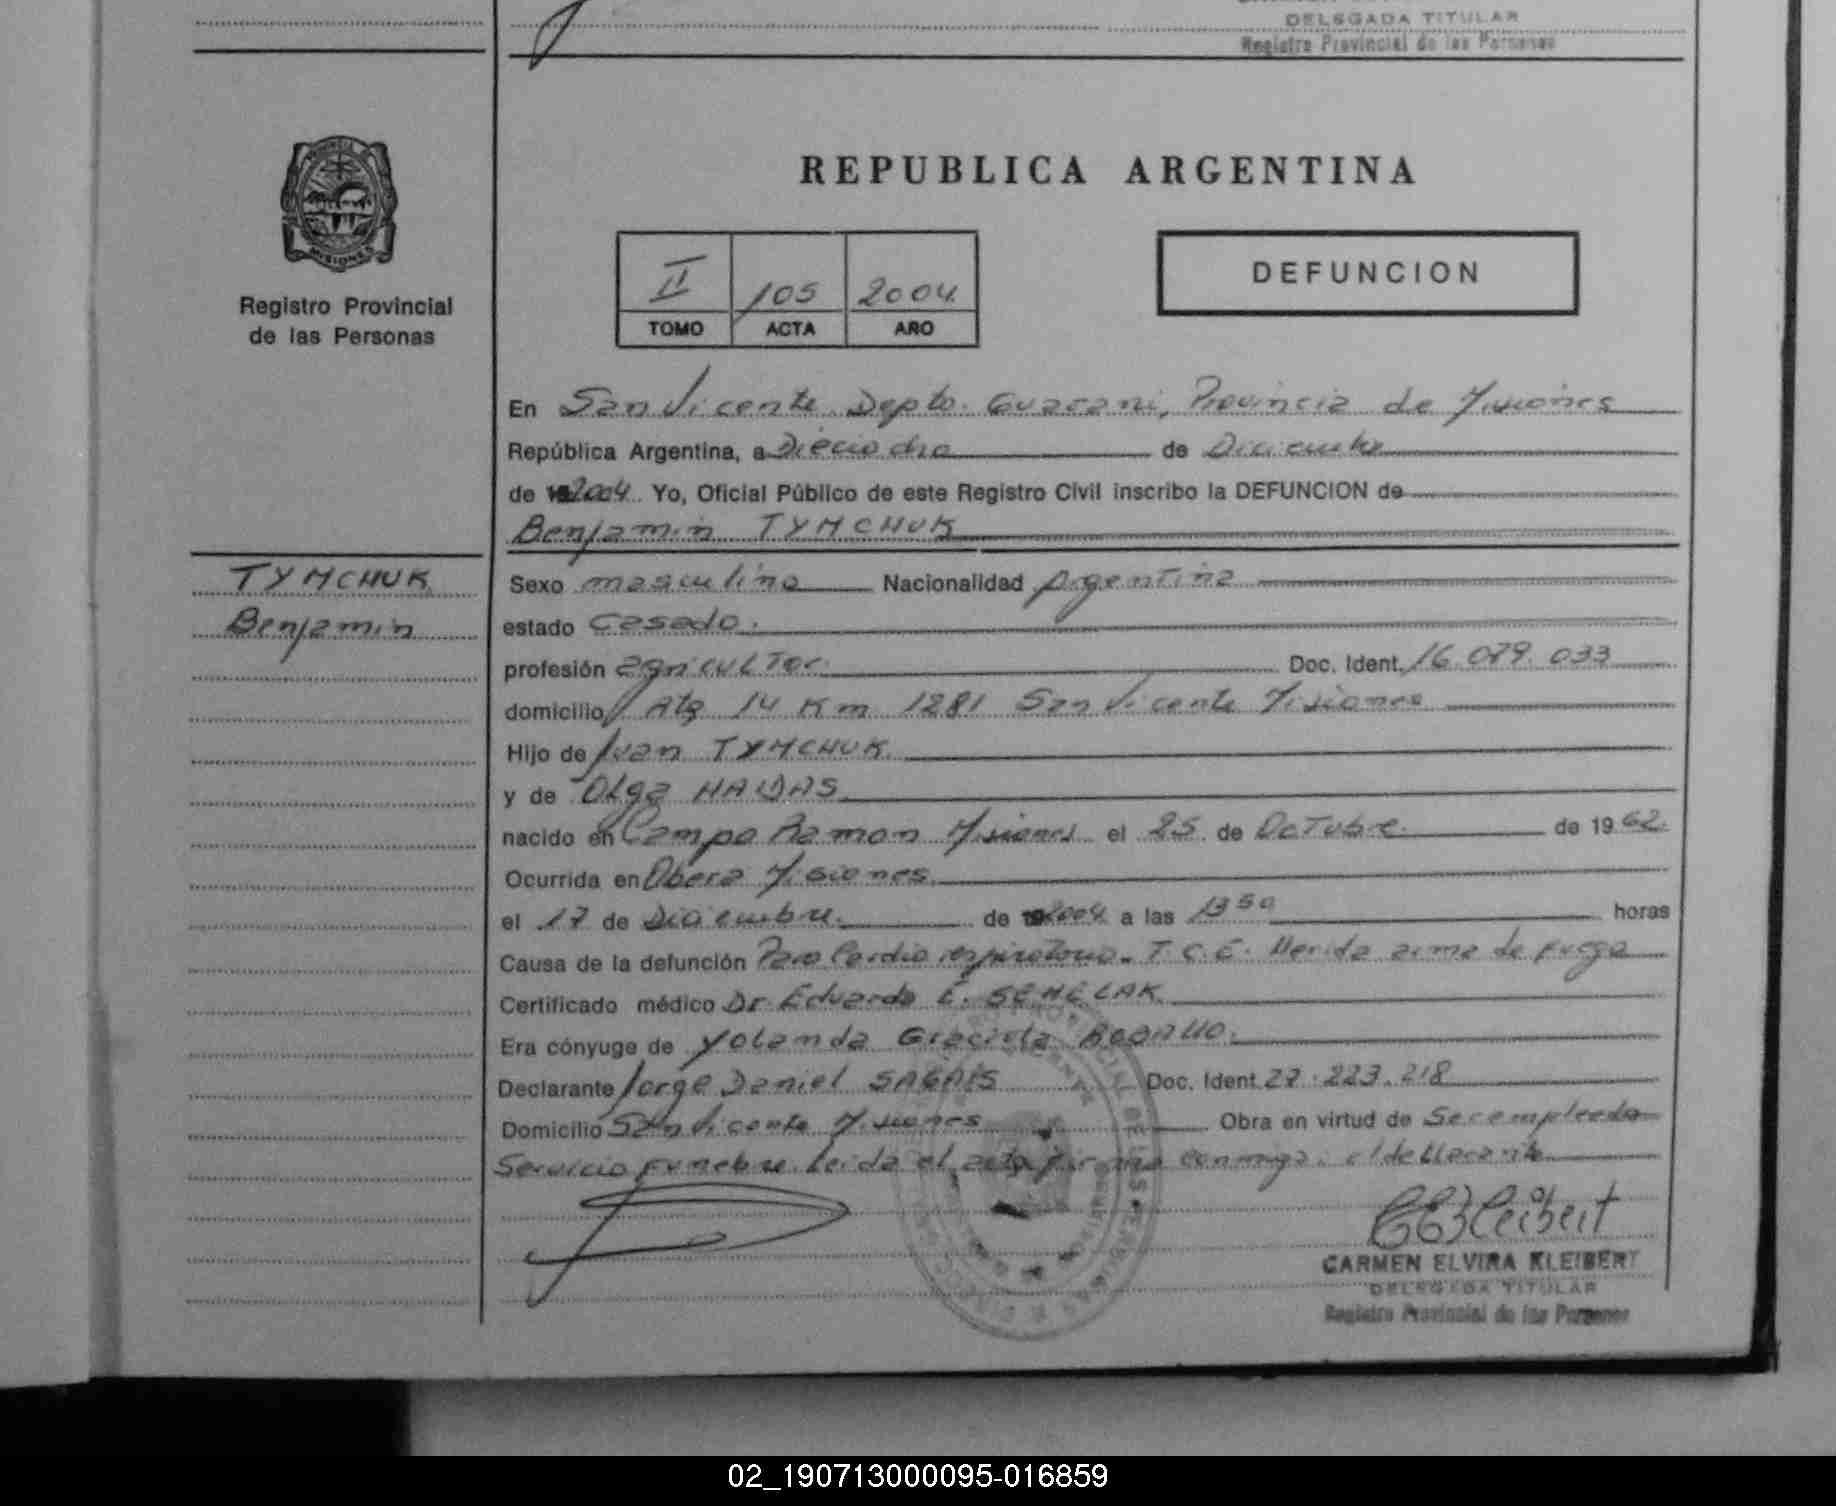 DELEGADA TITULAR
Registro Provincial de las Personas
PROVINCIA DE
MISIONES
Registro Provincial
de las Personas
REPUBLICA ARGENTINA
II 105 2004
TOMO ACTA AÑO
DEFUNCION
En San Vicente Depto. Guarani, Provincia de Misiones
República Argentina, a Dieciocho de Diciembre
de 2004 Yo, Oficial Público de este Registro Civil inscribo la DEFUNCION de
Benjamin TYMCHUK
TYMCHUK
Benjamin
Sexo masculino Nacionalidad Argentina
estado Casado.
profesión agricultor. Doc. Ident. 16.079.033
domicilio Rta 14 Km 1281 San Vicente Misiones
Hijo de Juan TYMCHUK
y de Olga HALDAS
nacido en Campo Ramon Misiones el 25 de Octubre de 1962.
Ocurrida en Obera Misiones
el 17 de Diciembre. de 2004 a las 13 50 horas
Causa de la defunción Paro Cardio respiratorio. T.C.E. Herida arma de fuego
Certificado médico Dr Eduardo E. SEHELAK
Era cónyuge de Yolanda Graciela
Declarante Jorge Daniel Doc. Ident. 27.223.218
Domicilio San Vicente Misiones Obra en virtud de Ser empleado
Servicio Funebre. Leida el acta firma conmigo. el declarante
CARMEN ELVIRA KLEIBERT
DELEGADA TITULAR
Registro Provincial de las Personas
02_190713000095-016859